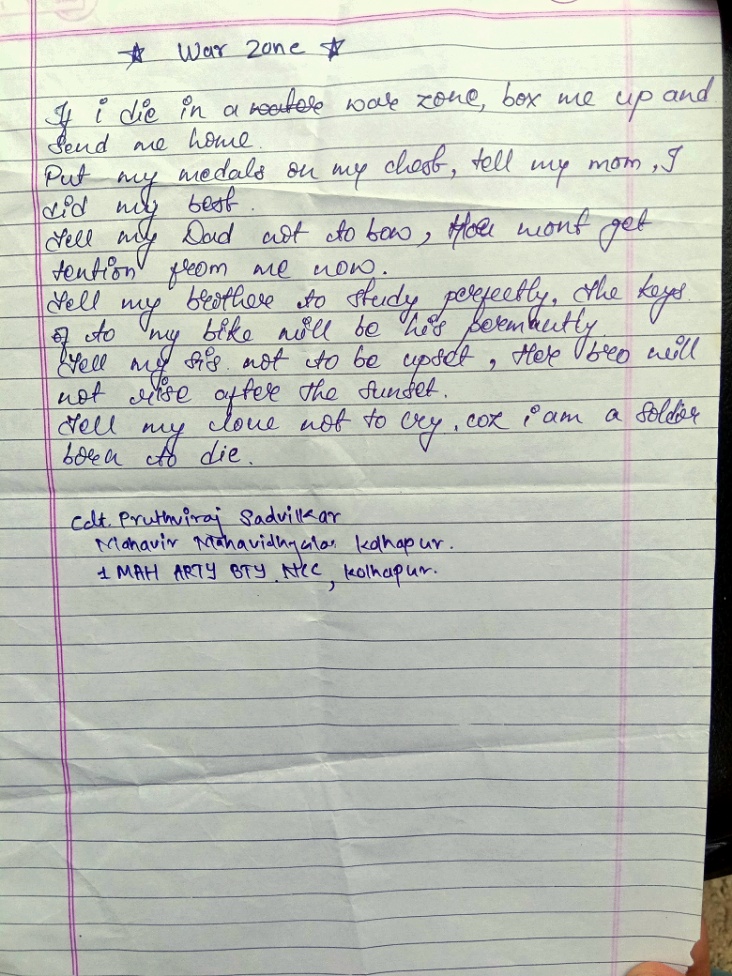 ☆ War zone ☆
If i die in a war zone, box me up and
Send me home.
Put my medals on my chest, tell my mom, I
did my best.
Tell my Dad not to bow, wont get
tention from me now.
Tell my brother to study perfectly, the keys
to my bike will be his permautly
Tell my sis. not to be upset, Her bro will
not rise after the sunset.
Tell my love not to cry, coz i am a soldier
born to die.
Cdt. Pruthviraj Sadvilkar
Mahavir Mahavidhyalay Kolhapur.
1 MAH ARTY BTY NCC, Kolhapur.